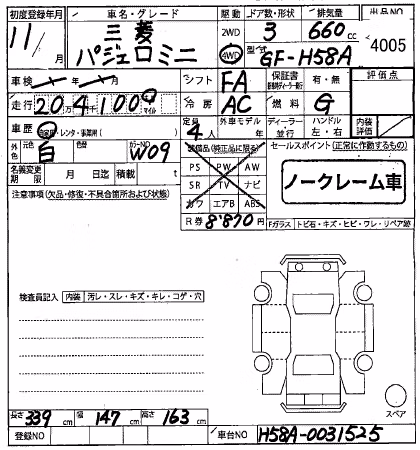 初度登録年月 車名・グレード 駆動 ドア数・形状 排気量 出品NO
11/月 三菱 パジェロミニ 2WD 4WD 3 660cc 4005
型式 GF-H58A
車検 年 月 シフト FA 保証書 有・無 評価点
走行 20万4千100 マイル 冷房 AC 燃料 G
車歴 自家用・レンタ・事業用( ) 定員 4人 外車モデル 年 ディーラー 並行 ハンドル 左・右 内装評価
外色 元色 白 色替 カラーNO W09
装備品(純正品に限る) セールスポイント(正常に作動するもの)
名義変更期限 月 日迄 積載 t
PS PW AW
SR TV ナビ
カワ エアB ABS
ノークレーム車
注意事項(欠品・修復・不具合箇所および状態)
R券 8'870円
Fガラス トビ石・キズ・ヒビ・ワレ・リペア跡
検査員記入 内装 汚レ・スレ・キズ・キレ・コゲ・穴
スペア
長さ 339 幅 147 高さ 163
登録NO 車台NO H58A-0031525